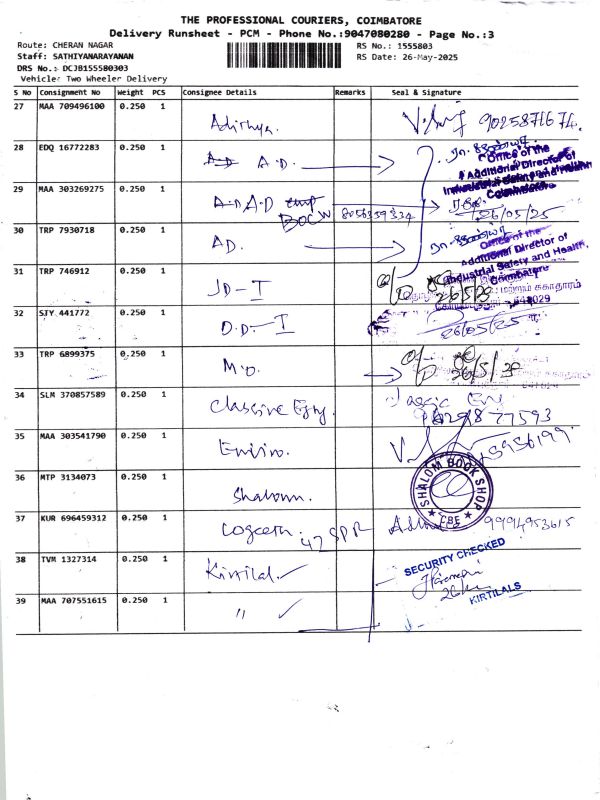 THE PROFESSIONAL COURIERS, COIMBATORE
Delivery Runsheet - PCM - Phone No.:9047080280 - Page No.:3
Route: CHERAN NAGAR
RS No.: 1555803
Staff: SATHIYANARAYANAN
RS Date: 26-May-2025
DRS No.: DCJB155580303
Vehicle: Two Wheeler Delivery
S No Consignment No Weight PCS Consignee Details Remarks Seal & Signature
27 MAA 709496100 0.250 1 Adithya.
28 EDQ 16772283 0.250 1 A.D.
Office of the
Additional Director of
Industrial Safety and Health
Coimbatore
29 MAA 303269275 0.250 1 A.D
BOCW 8056359334
26/05/25
30 TRP 7930718 0.250 1 AD.
Office of the
Additional Director of
Industrial Safety and Health,
Coimbatore
31 TRP 746912 0.250 1 JD-I
26/5/25
641029
32 SJY 441772 0.250 1 D.D.-I
26/05/25
33 TRP 6899375 0.250 1 M.O.
34 SLM 370857589 0.250 1
77593
35 MAA 303541790 0.250 1 Enviro.
36 MTP 3134073 0.250 1 Shalom.
SHALOM BOOK SHOP
★ CBE ★
37 KUR 696459312 0.250 1 47 SPR 9994953615
38 TVM 1327314 0.250 1 Kirtilal
SECURITY CHECKED
KIRTILALS
39 MAA 707551615 0.250 1 "